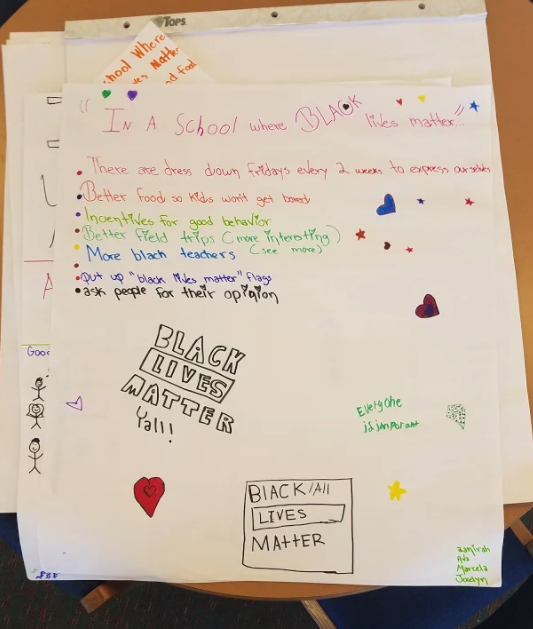 TOPS
School Where
Matter
food
"In A School where BLACK lives matter..."
There are dress down Fridays every 2 weeks to express ourselves
Better food so kids won't get bored
Incentives for good behavior
Better field trips (more interesting)
More black teachers (see more)
Put up "black lives matter" flags
ask people for their opinion
BLACK
LIVES
MATTER
Yall!
Everyone
is important
BlACK/All
LIVES
MATTER
Marcela
Jocelyn